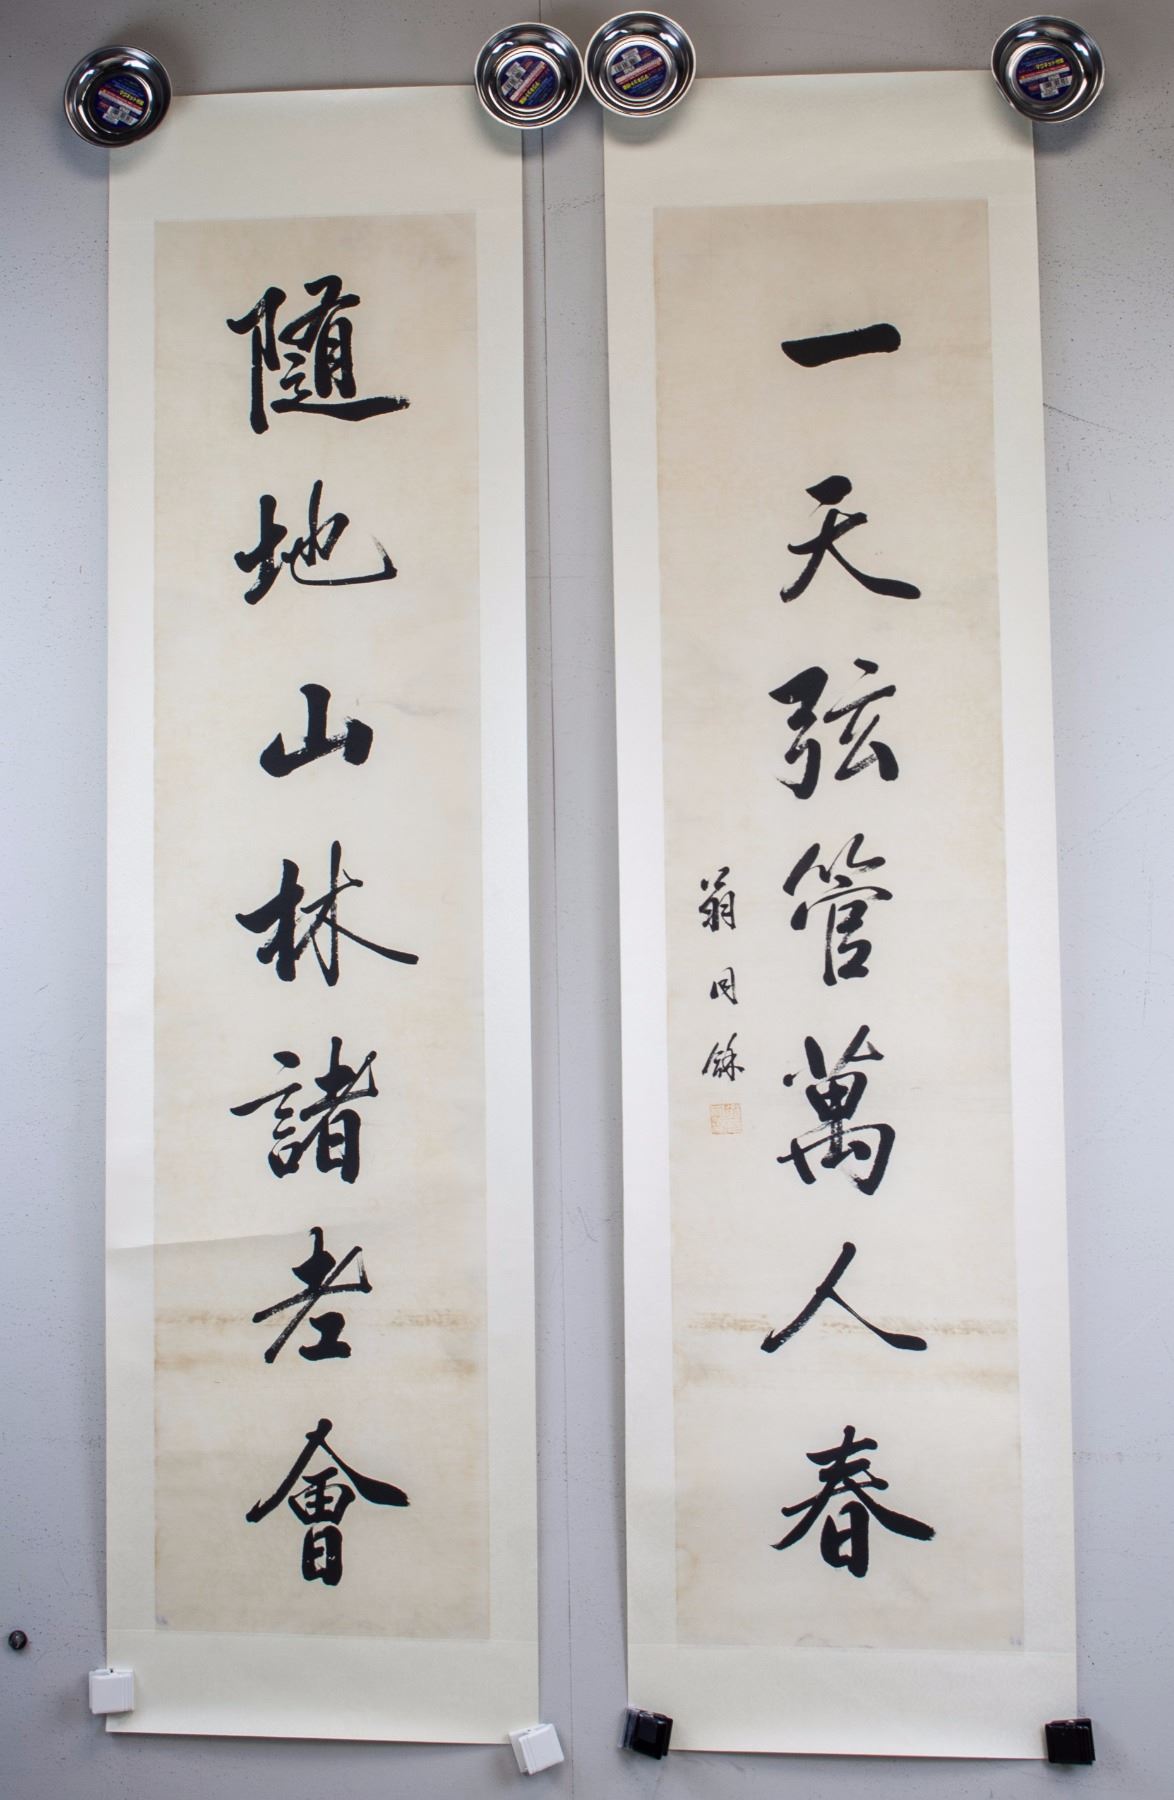 一天弦管萬人春
翁同龢
隨地山林諸老會